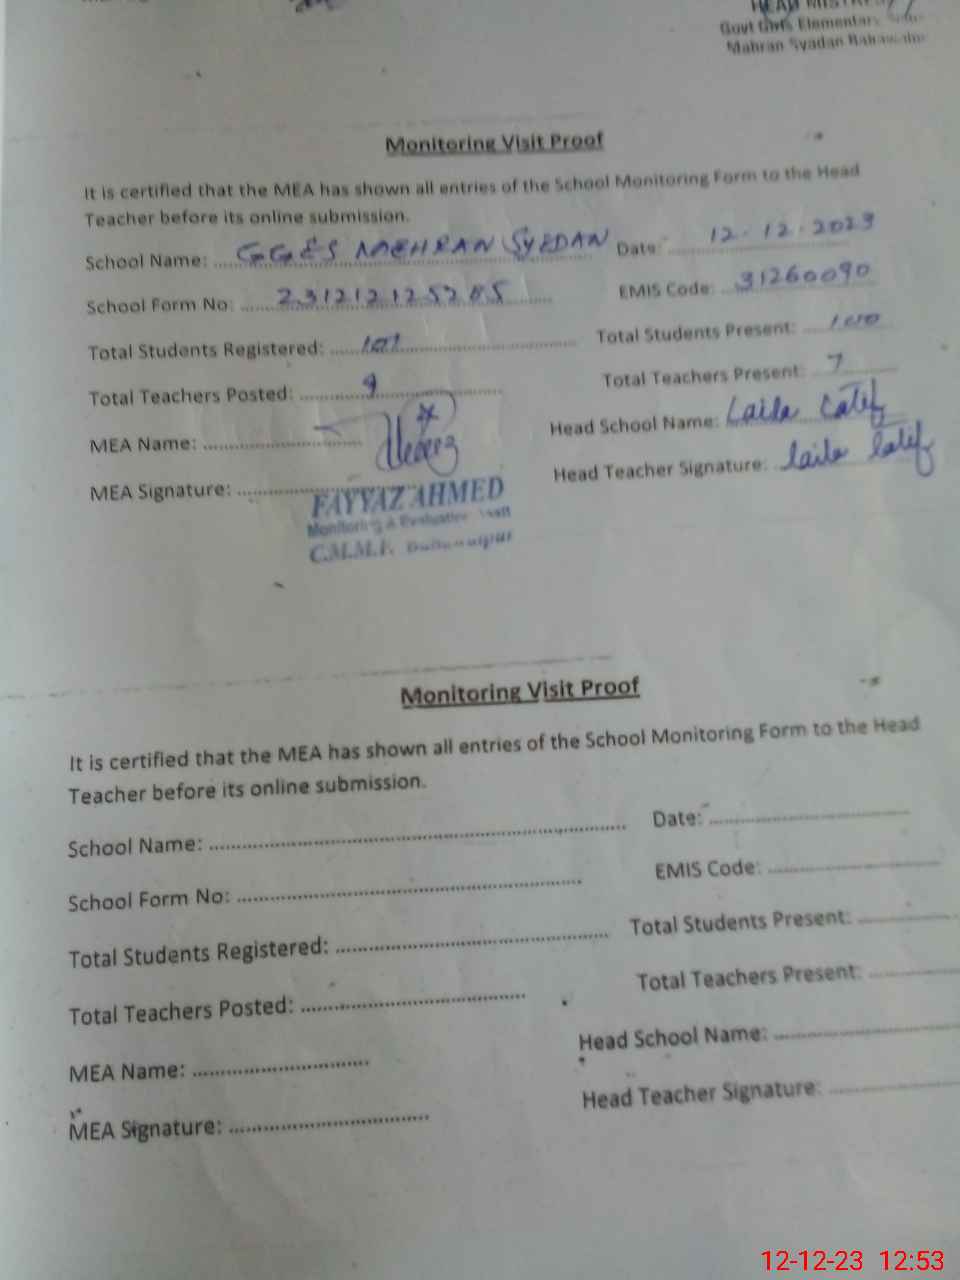 HEAD MISTRESS
Govt Girls Elementary
Mahran Syadan Bahawalpur
Monitoring Visit Proof
It is certified that the MEA has shown all entries of the School Monitoring Form to the Head
Teacher before its online submission.
School Name: GGES MEHRAN SYEDAN Date: 12.12.2023
School Form No: EMIS Code: 31260090
Total Students Registered: 101 Total Students Present: 100
Total Teachers Posted: 9 Total Teachers Present: 7
MEA Name: Head School Name: Laila Latif
MEA Signature: Head Teacher Signature: Laila Latif
FAYYAZ AHMED
Monitoring & Evaluation Asstt
C.M.M.F. Bahawalpur
Monitoring Visit Proof
It is certified that the MEA has shown all entries of the School Monitoring Form to the Head
Teacher before its online submission.
School Name: Date:
School Form No: EMIS Code:
Total Students Registered: Total Students Present:
Total Teachers Posted: Total Teachers Present:
MEA Name: Head School Name:
MEA Signature: Head Teacher Signature:
12-12-23 12:53